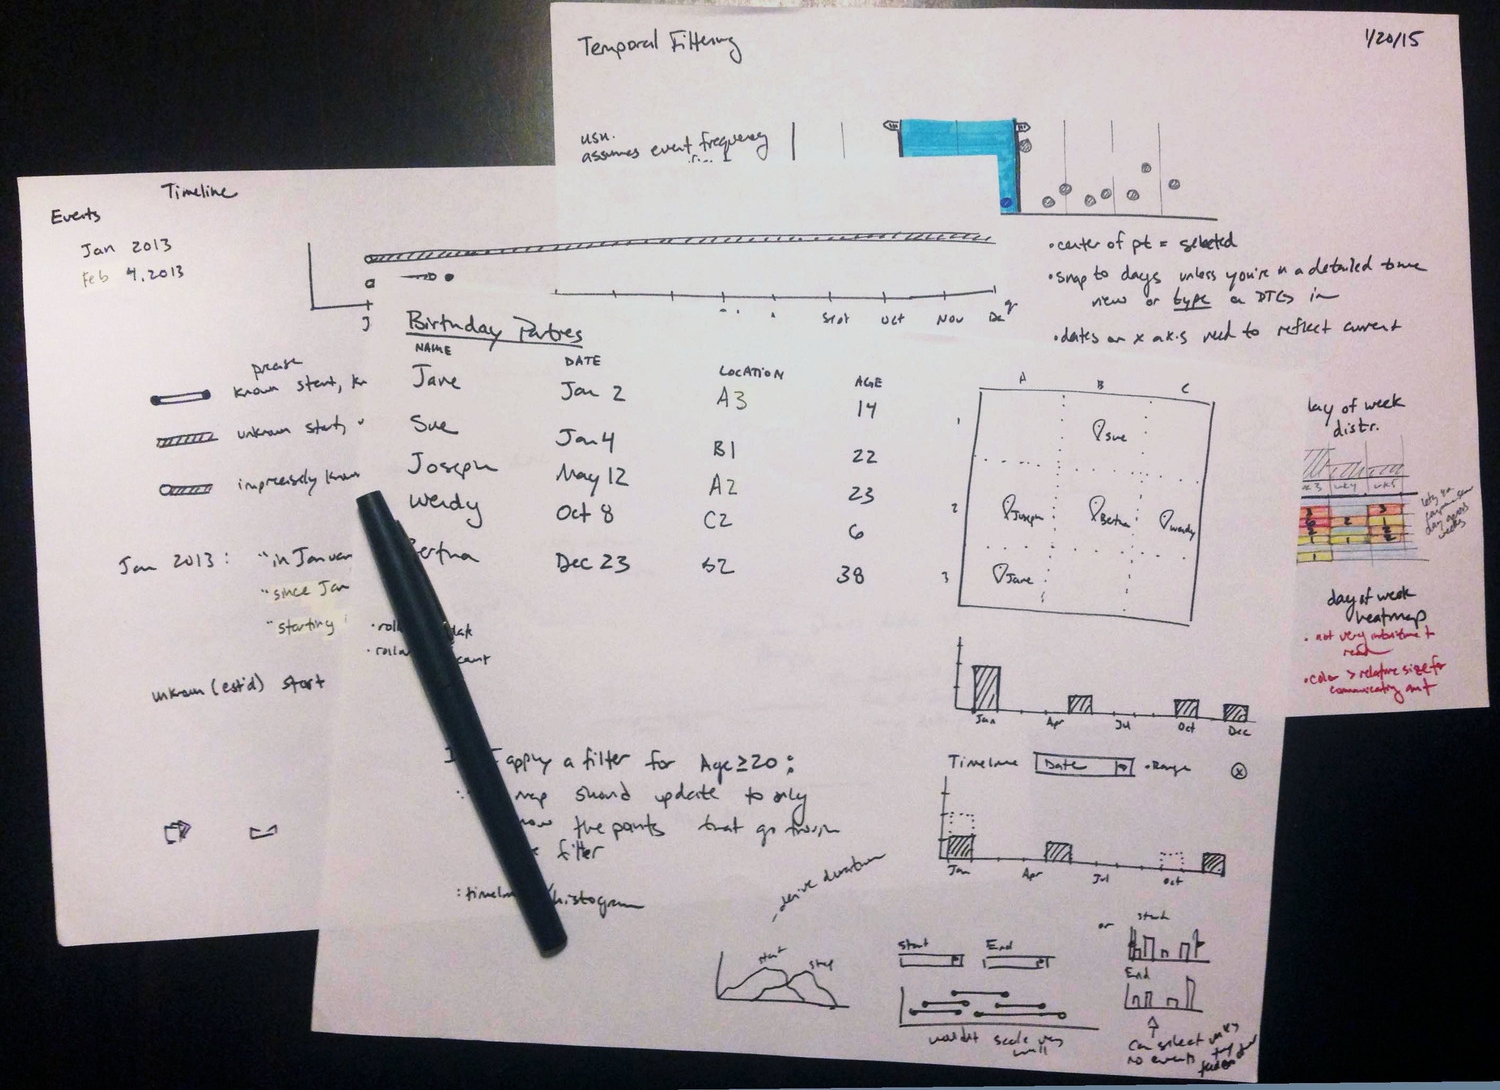 Temporal Filtering
1/20/15
usu.
assumes event frequency
• center of pt = selected
• snap to days unless you're in a detailed time
view or type a DTG in
• dates on x axis need to reflect current
Timeline
Events
Jan 2013
Feb 4, 2013
J
Sept Oct Nov Dec
known start,
unknown start,
imprecisely known
Jan 2013: "in January
"since Jan
"starting
unknown (est'd) start
Birthday Parties
NAME DATE LOCATION AGE
Jane Jan 2 A3 14
Sue Jan 4 B1 22
Joseph May 12 A2 23
Wendy Oct 8 C2 6
Bertha Dec 23 B2 38
A B C
1 Sue
2 Joseph Bertha Wendy
3 Jane
Jan Apr Jul Oct Dec
day of week
distr.
wk3 wk4 wk5
day of week
heatmap
• not very intuitive to
read
• color > relative size for
communicating amt
I apply a filter for Age ≥ 20:
map should update to only
the points that go through
filter
: timeline/histogram
Timeline Date • Range
Jan Apr Jul Oct
derive duration
start stop
Start End
wouldn't scale very
well
or
Start
End
can select
no events